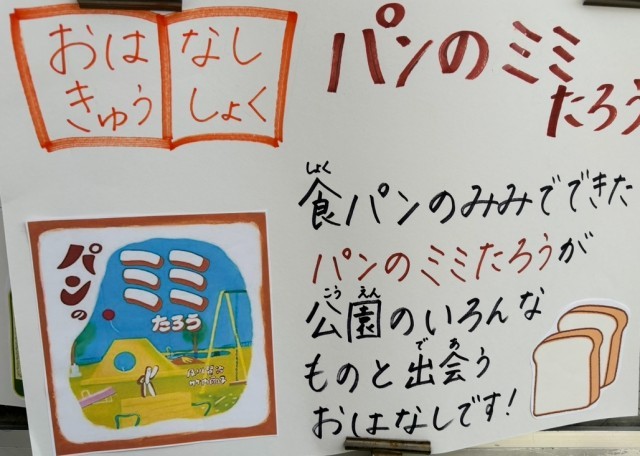 おはなし
きゅうしょく
パンのミミ
たろう
食パンのみみでできた
しょく
パンのミミたろうが
公園のいろんな
こうえん
ものと出会う
であ
おはなしです!
パンの
ミミ
たろう